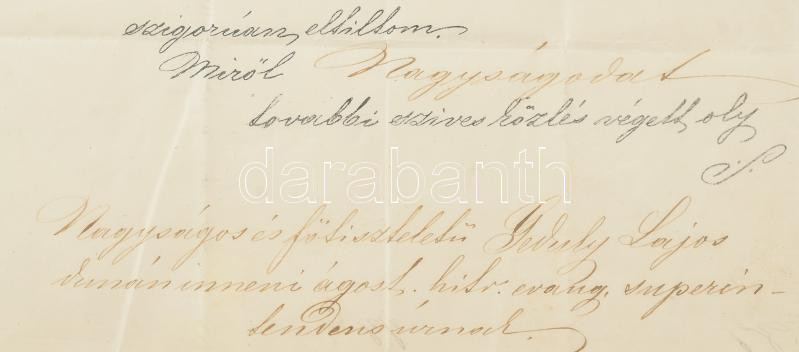 szigorúan eltiltom.
Miről Nagyságodat
további szives közlés végett oly
S.
darabanth
Nagyságos és főtiszteletű Geduly Lajos
dunáninneni ágost. hitv. evang. superin-
tendens úrnak.